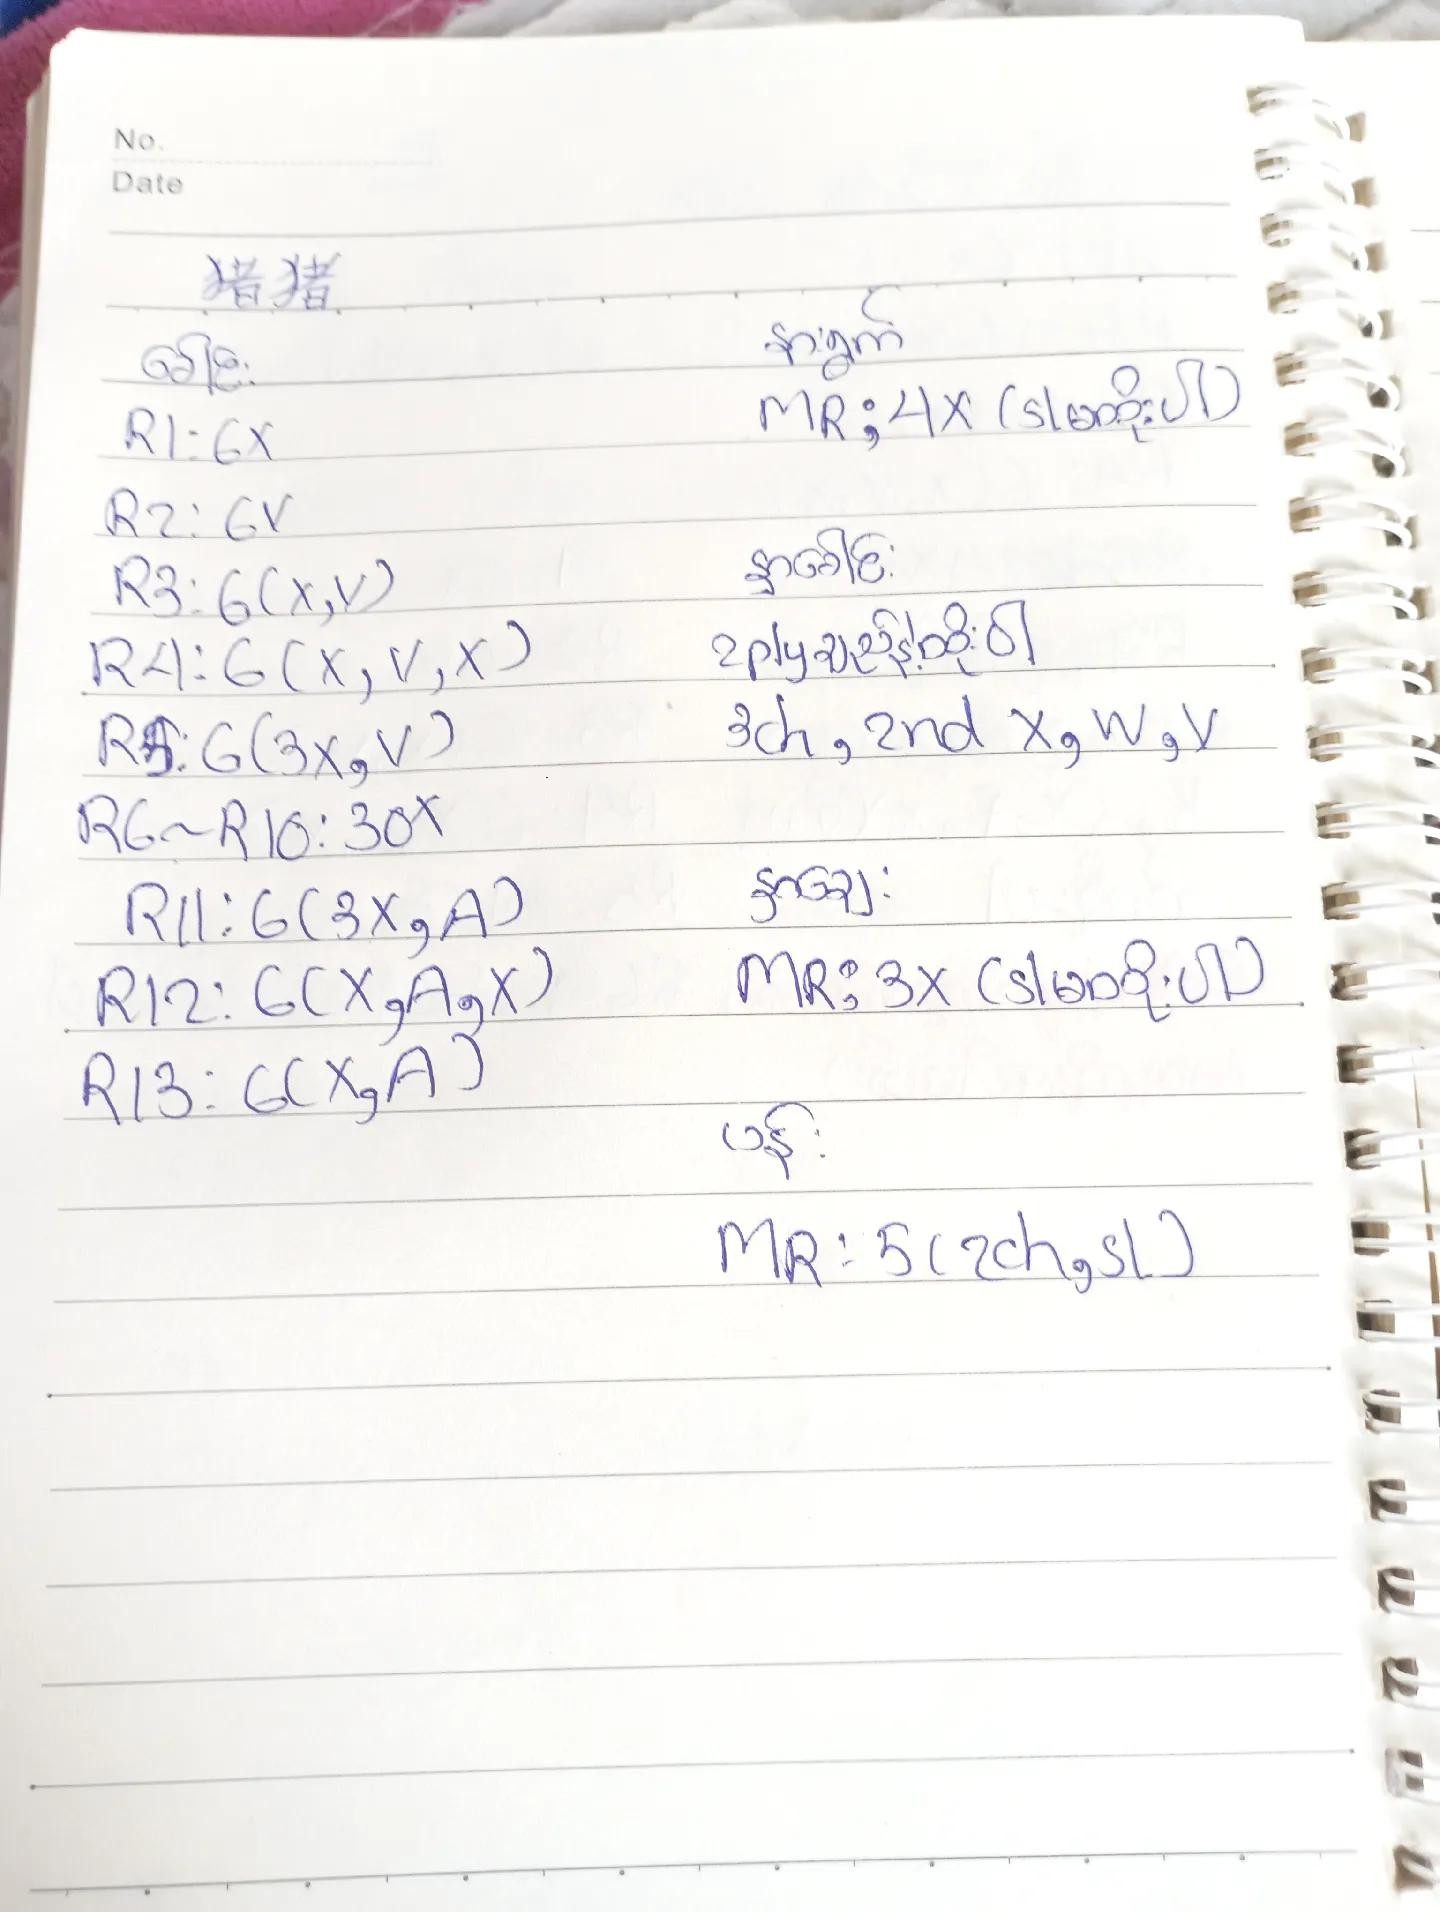 No.
Date
猪猪
ခေါင်း
R1: 6X
R2: 6V
R3: 6(X,V)
R4: 6(X,V,X)
R5: 6(3X,V)
R6~R10: 30X
R11: 6(3X,A)
R12: 6(X,A,X)
R13: 6(X,A)
နားရွက်
MR; 4X (sl မထိုးပါ)
နှာခေါင်း
2ply ချည်နဲ့ထိုးပါ
3ch, 2nd X, W, V
နှာချေး
MR; 3X (sl မထိုးပါ)
ပန်း
MR: 5(2ch,sl)